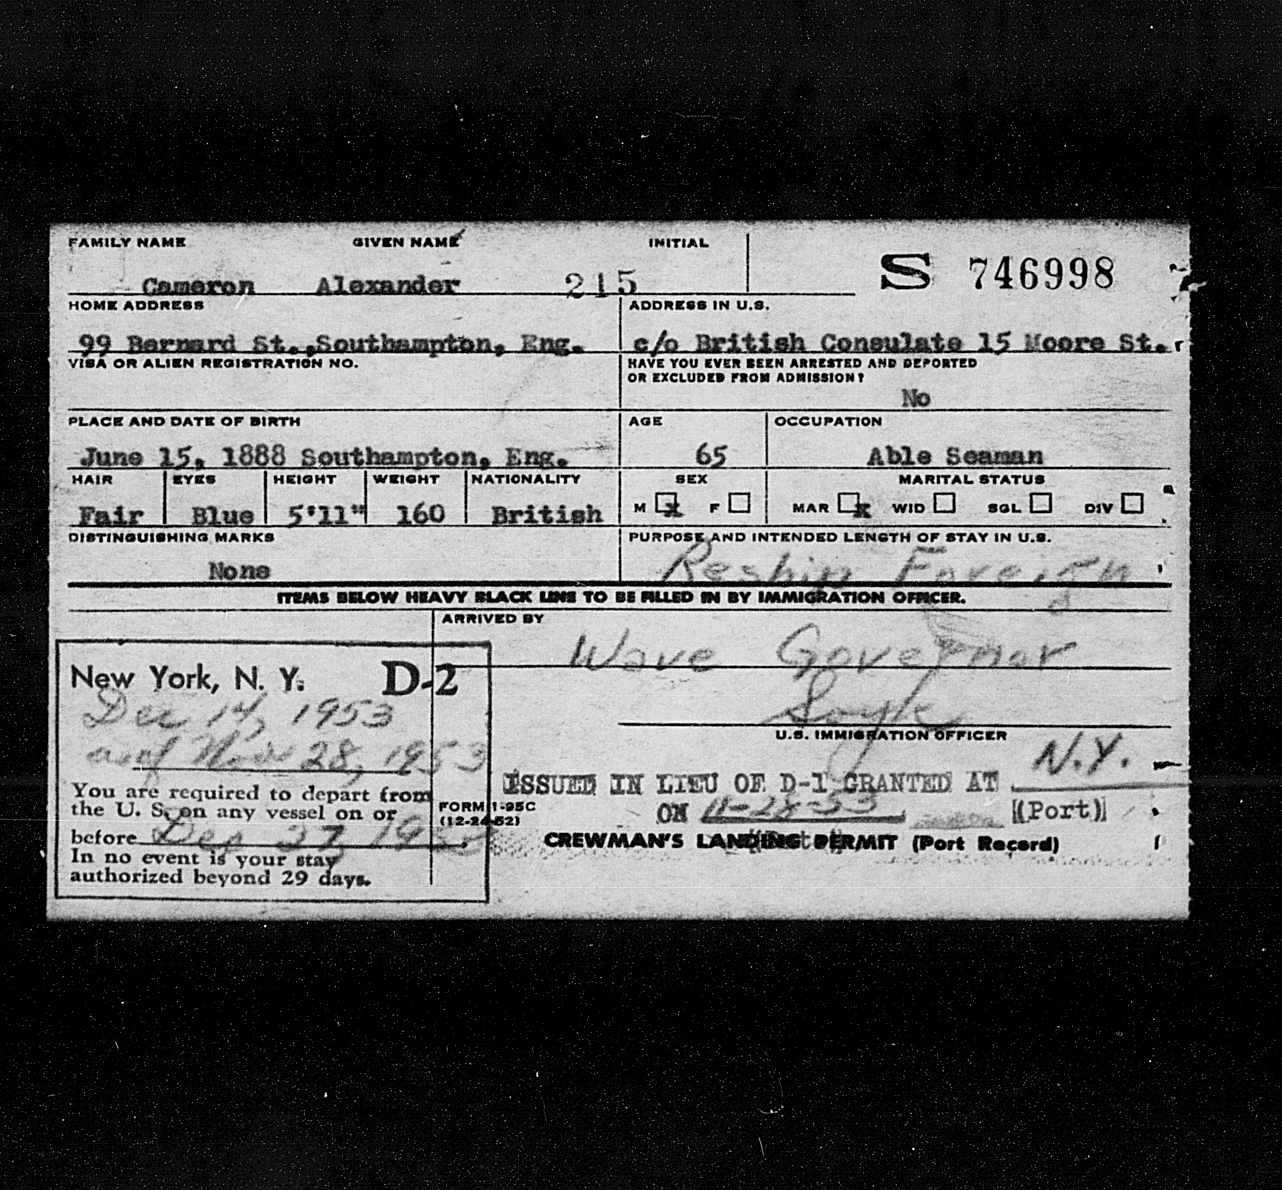 FAMILY NAME GIVEN NAME INITIAL
Cameron Alexander 215 S 746998
HOME ADDRESS ADDRESS IN U.S.
99 Bernard St.,Southampton, Eng. c/o British Consulate 15 Moore St.
VISA OR ALIEN REGISTRATION NO. HAVE YOU EVER BEEN ARRESTED AND DEPORTED
OR EXCLUDED FROM ADMISSION?
No
PLACE AND DATE OF BIRTH AGE OCCUPATION
June 15, 1888 Southampton, Eng. 65 Able Seaman
HAIR EYES HEIGHT WEIGHT NATIONALITY SEX MARITAL STATUS
M x F MAR x WID SGL DIV
Fair Blue 5'11" 160 British
DISTINGUISHING MARKS PURPOSE AND INTENDED LENGTH OF STAY IN U.S.
None Reship Foreign
ITEMS BELOW HEAVY BLACK LINE TO BE FILLED IN BY IMMIGRATION OFFICER.
ARRIVED BY
Wave Governor
New York, N. Y. D-2
Dec 14, 1953
as of Nov 28, 1953
U.S. IMMIGRATION OFFICER
N.Y.
ISSUED IN LIEU OF D-1 GRANTED AT
You are required to depart from
the U. S. on any vessel on or
before Dec 27, 1953
In no event is your stay
authorized beyond 29 days.
FORM I-95C
(12-24-52)
ON 11-28-53 (Port)
CREWMAN'S LANDING PERMIT (Port Record)